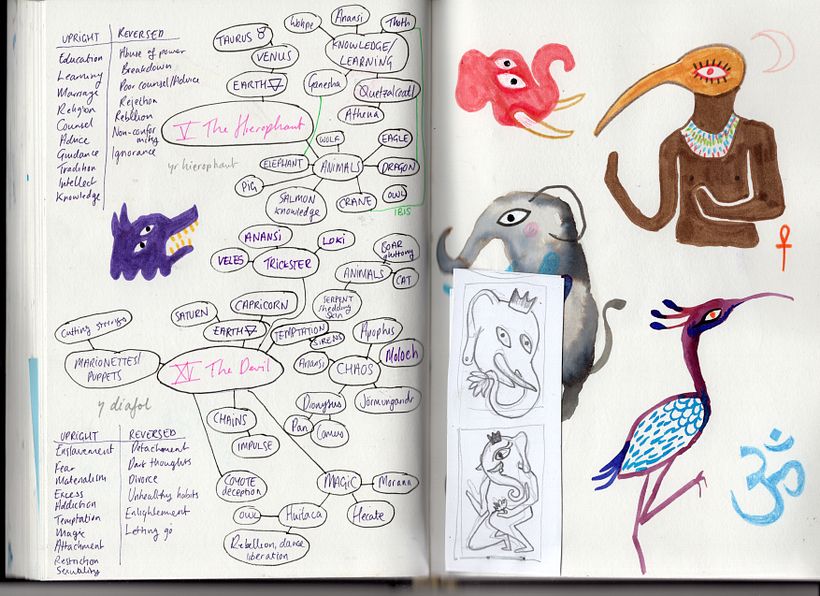 UPRIGHT
Education
Learning
Marriage
Religion
Counsel
Advice
Guidance
Tradition
Intellect
Knowledge
REVERSED
Abuse of power
Breakdown
Poor counsel/Advice
Rejection
Rebellion
Non-confor
mity
Ignorance
TAURUS ♉
VENUS
EARTH
V The Hierophant
yr hierophant
Wohpe
Anansi
Thoth
KNOWLEDGE/
LEARNING
Ganesha
Quetzalcoatl
Athena
WOLF
EAGLE
ELEPHANT
ANIMALS
DRAGON
PIG
SALMON
knowledge
CRANE
OWL
IBIS
ANANSI
LOKI
VELES
TRICKSTER
BOAR
gluttony
ANIMALS
CAT
SERPENT
shedding
skin
CAPRICORN
SATURN
EARTH
TEMPTATION
SIRENS
Apophis
Cutting strings
MARIONETTES/
PUPPETS
XV The Devil
y diafol
Anansi
CHAOS
Moloch
Dionysus
Jörmungandr
Pan
CHAINS
IMPULSE
COYOTE
deception
MAGIC
Morana
OWL
Huitaca
Hecate
Rebellion, dance
liberation
UPRIGHT
Enslavement
Fear
Materialism
Excess
Addiction
Temptation
Magic
Attachment
Restriction
Sexuality
REVERSED
Detachment
Dark thoughts
Divorce
Unhealthy habits
Enlightenment
Letting go
ॐ